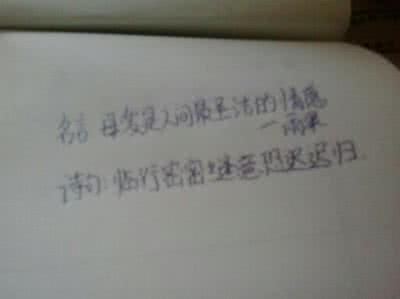 名言 母爱是人间最圣洁的情感
—雨果
诗句:临行密密缝意恐迟迟归